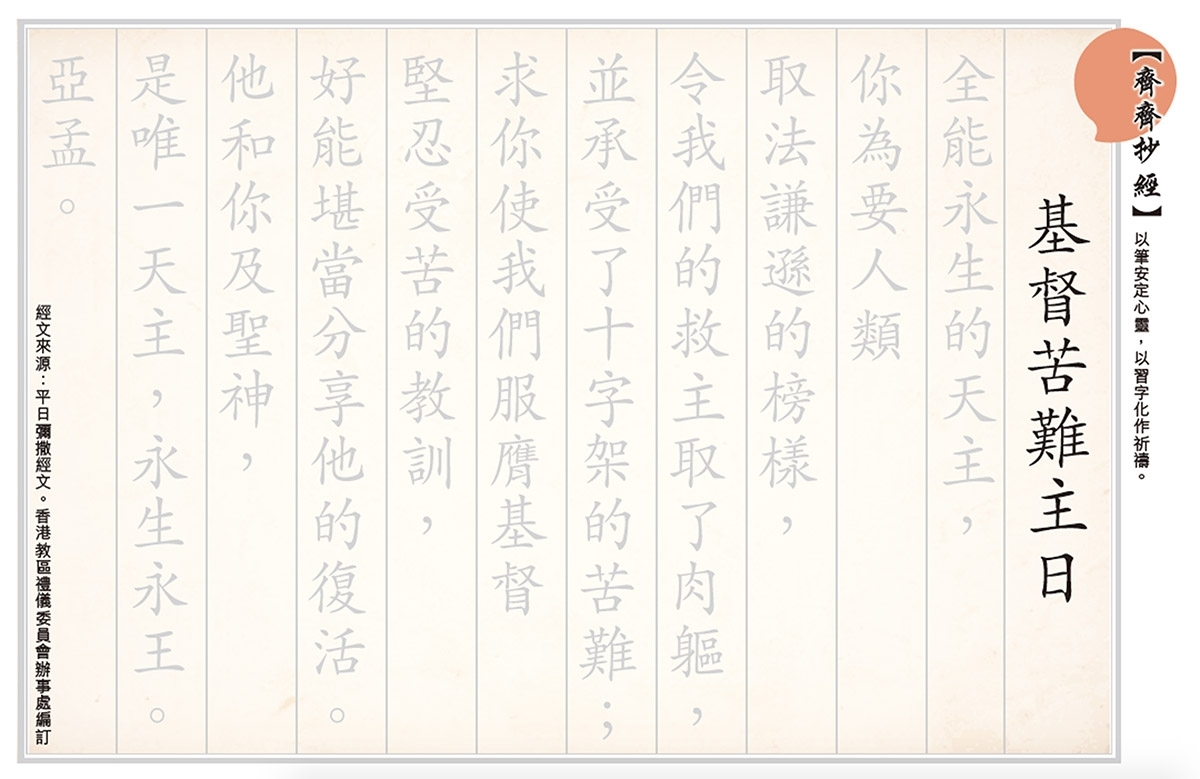 【齊齊抄經】
以筆安定心靈，以習字化作祈禱。
基督苦難主日
全能永生的天主，
你為要人類
取法謙遜的榜樣，
令我們的救主取了肉軀，
並承受了十字架的苦難；
求你使我們服膺基督
堅忍受苦的教訓，
好能堪當分享他的復活。
他和你及聖神，
是唯一天主，永生永王。
亞孟。
經文來源：平日彌撒經文。香港教區禮儀委員會辦事處編訂